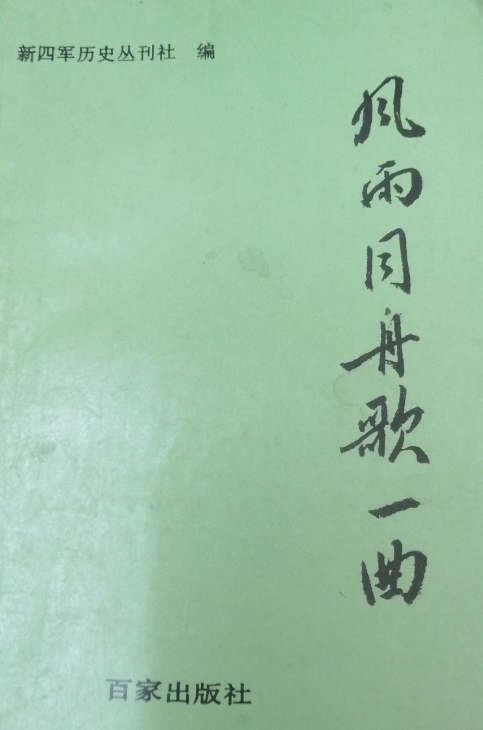 新四军历史丛刊社 编
风雨同舟歌一曲
百家出版社